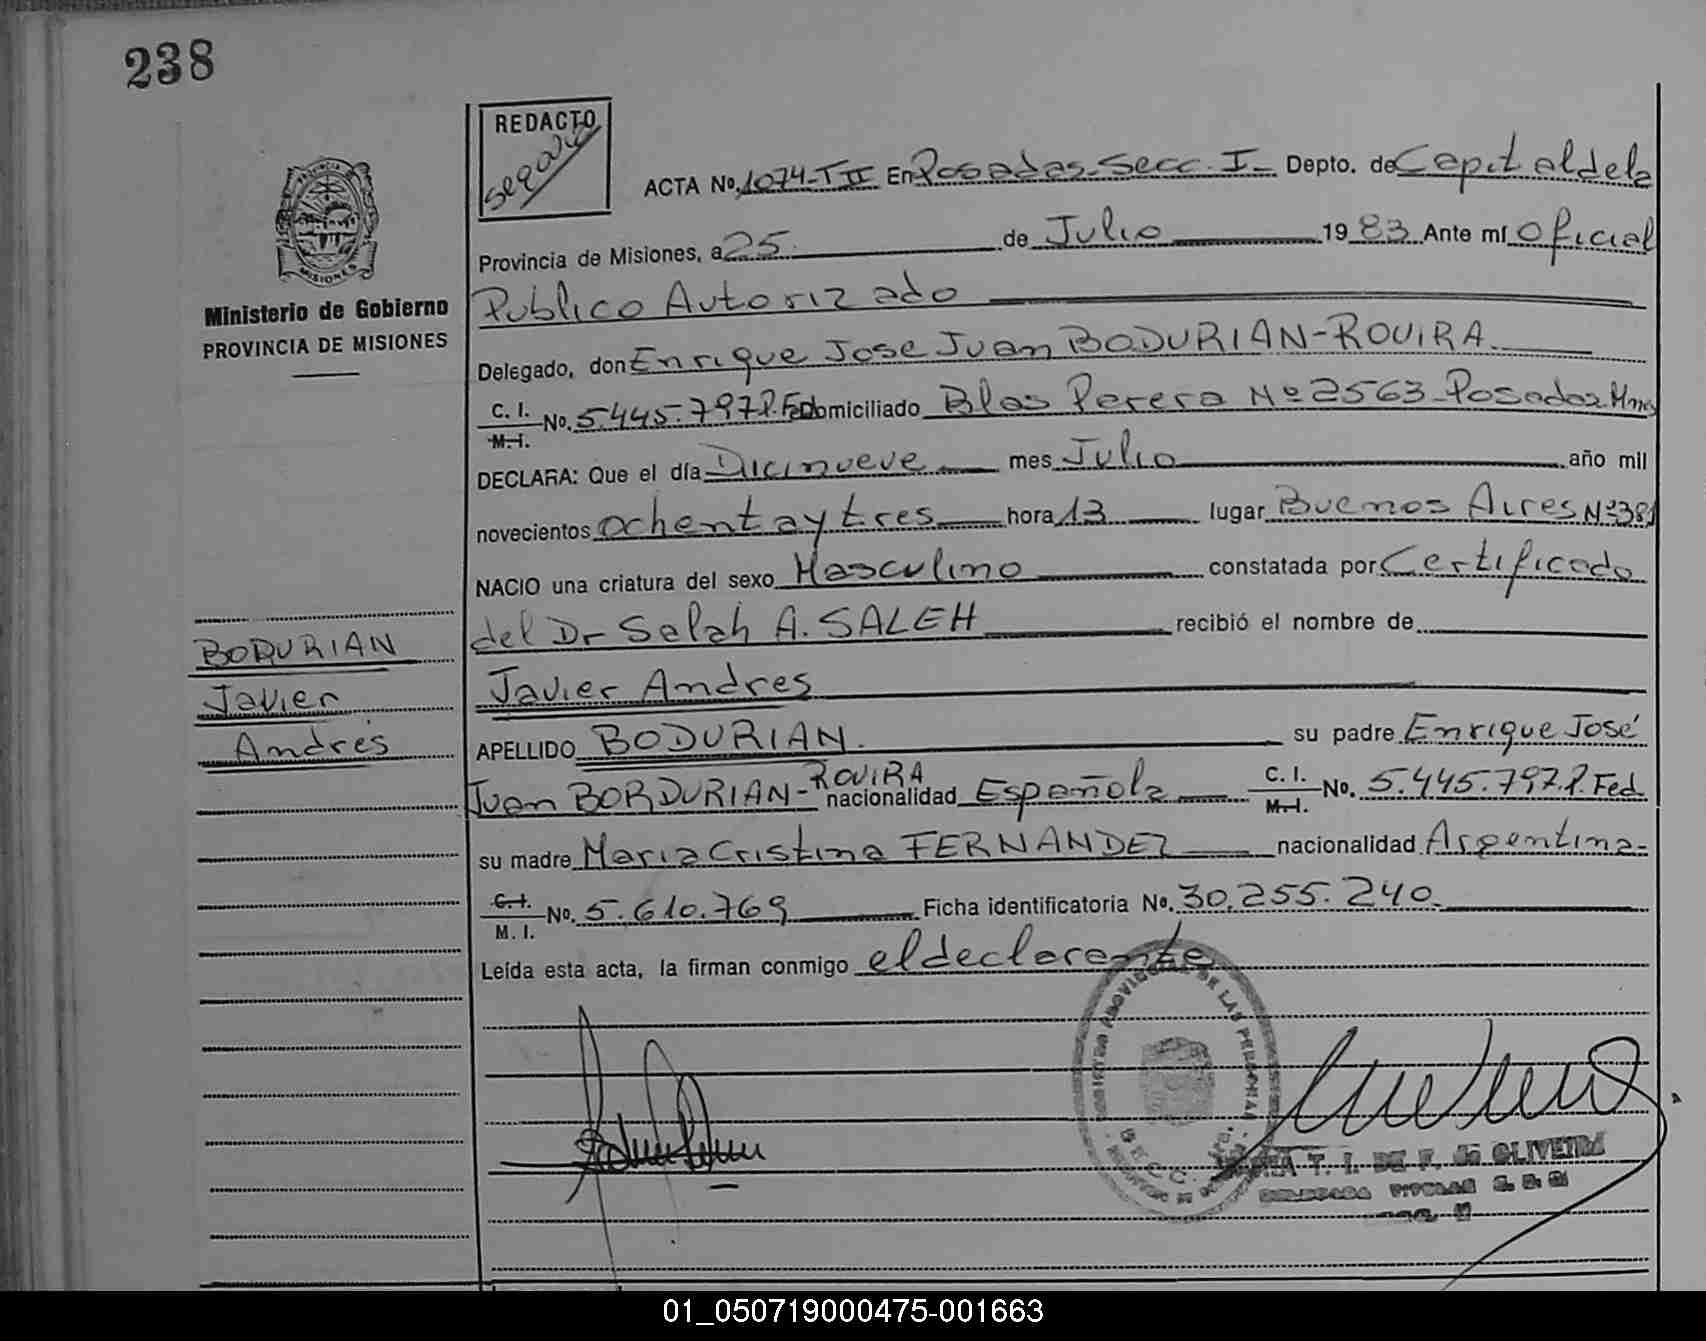 238
REDACTO
ACTA No. 1074-T II En Posadas-Secc. I- Depto. de Capital de la
Provincia de Misiones, a 25 de Julio 1983 Ante mí Oficial
Publico Autorizado
MISIONES
Ministerio de Gobierno
PROVINCIA DE MISIONES
Delegado, don Enrique Jose Juan BODURIAN-ROVIRA
C. I. M. I. No. 5.445.797 P. Fed Domiciliado Blas Perera Nº 2563-Posadas Mnes
DECLARA: Que el día Dicinueve mes Julio año mil
novecientos ochenta y tres hora 13 lugar Buenos Aires Nº 381
NACIO una criatura del sexo Masculino constatada por Certificado
del Dr Salah A. SALEH recibió el nombre de
Javier Andres
APELLIDO BODURIAN. su padre Enrique José
Juan BORDURIAN-ROVIRA nacionalidad Española C. I. M. I. No. 5.445.797.P. Fed
su madre Maria Cristina FERNANDEZ nacionalidad Argentina-
C. I. M. I. No. 5.610.769 Ficha identificatoria No. 30.255.240.
Leída esta acta, la firman conmigo el declarante
BODURIAN
Javier
Andres
DE LAS PERSONAS
T. I. DE F. de OLIVEIRA
01_050719000475-001663